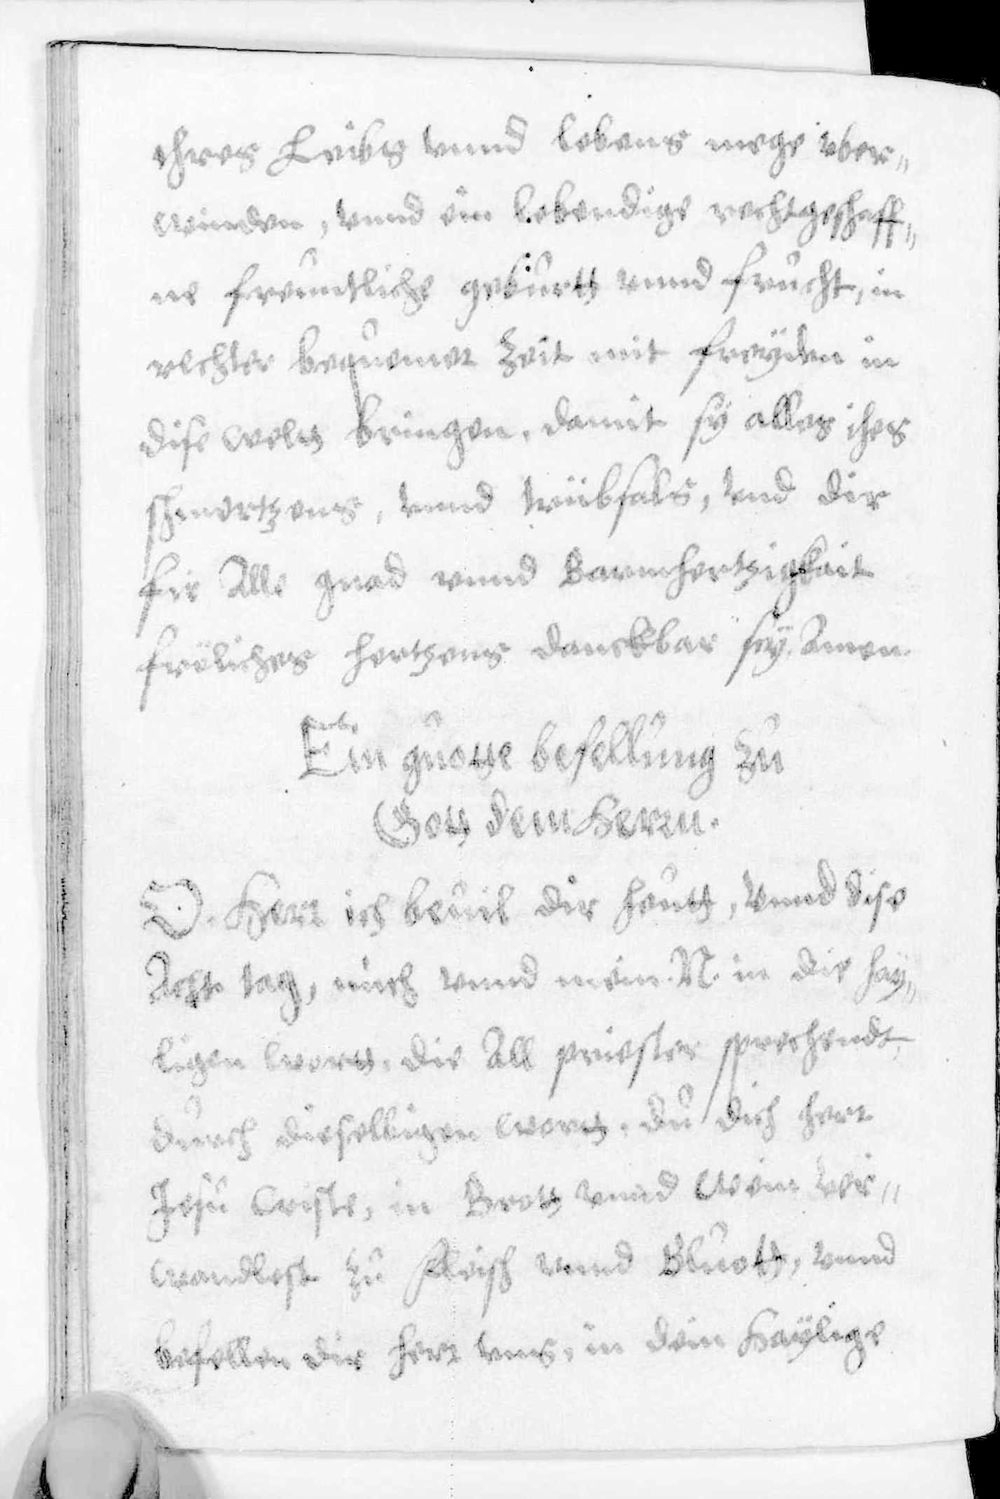 ihres Leibs vnnd lebens mege vber„
winden, vnnd ein lebendige rechtgeschaff„
ne freuntliche geburtt vnnd frucht, in
rechter bequemer Zeit mit freyden in
dise weltt bringen, damit sy alles ihes
schmertzens, vnnd trüebsals, vnd dir
fir Alle gnad vnnd Barmhertzigkait
frölichs hertzens danckbar sey. Amen.
Ein guotte befellung zu
Gott dem Herrn.
O. Herr ich beuil dir heutt, vnnd dise
Acht tag, mich vnnd mein .N. in die hay„
ligen wortt, die All priester sprechendt,
durch dieselbigen wortt, du dich herr
Jesu Criste, in Brott vnnd Wein ver„
wandlest zu fleisch vnnd Bluott, vnnd
befellen dir herr vns, in dein Haÿlige